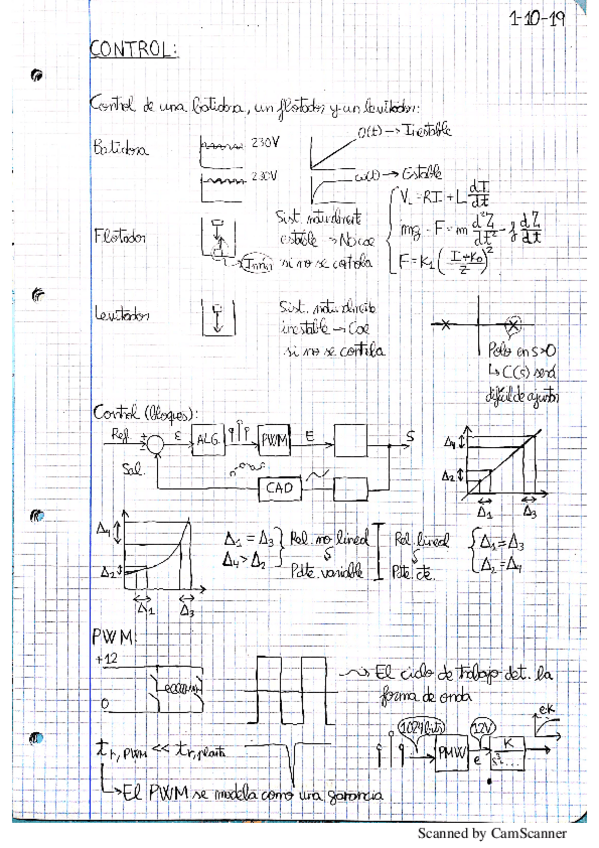 1-10-19
CONTROL:
Control de una batidora, un flotador y un levitador:
Batidora
230V
230V
θ(t) → Inestable
ω(t) → Estable
Flotador
Imín
Sist. naturalmente
estable → No cae
si no se controla
V = RI + L dI/dt
mg - F = m d²Z/dt² - f dZ/dt
F = K₁ (I+K₀/Z)²
Levitador
Sist. naturalmente
inestable → Cae
si no se controla
Polo en s>0
↳ C(s) será
difícil de ajustar
Control (bloques):
Ref.
+
-
ε
ALG.
PWM
E
S
Sal.
CAD
Δ4
Δ2
Δ1
Δ3
Δ4
Δ2
Δ1
Δ3
Δ1 = Δ3
Δ4 > Δ2
Rel. no lineal
Pdte. variable
Rel. lineal
Pdte. cte.
Δ1 = Δ3
Δ2 = Δ4
PWM:
+12
0
El ciclo de trabajo det. la
forma de onda
tr,PWM << tr,planta
↳ El PWM se modela como una ganancia
1024bits
PMW
12V
e
K
s²...
eK
Scanned by CamScanner